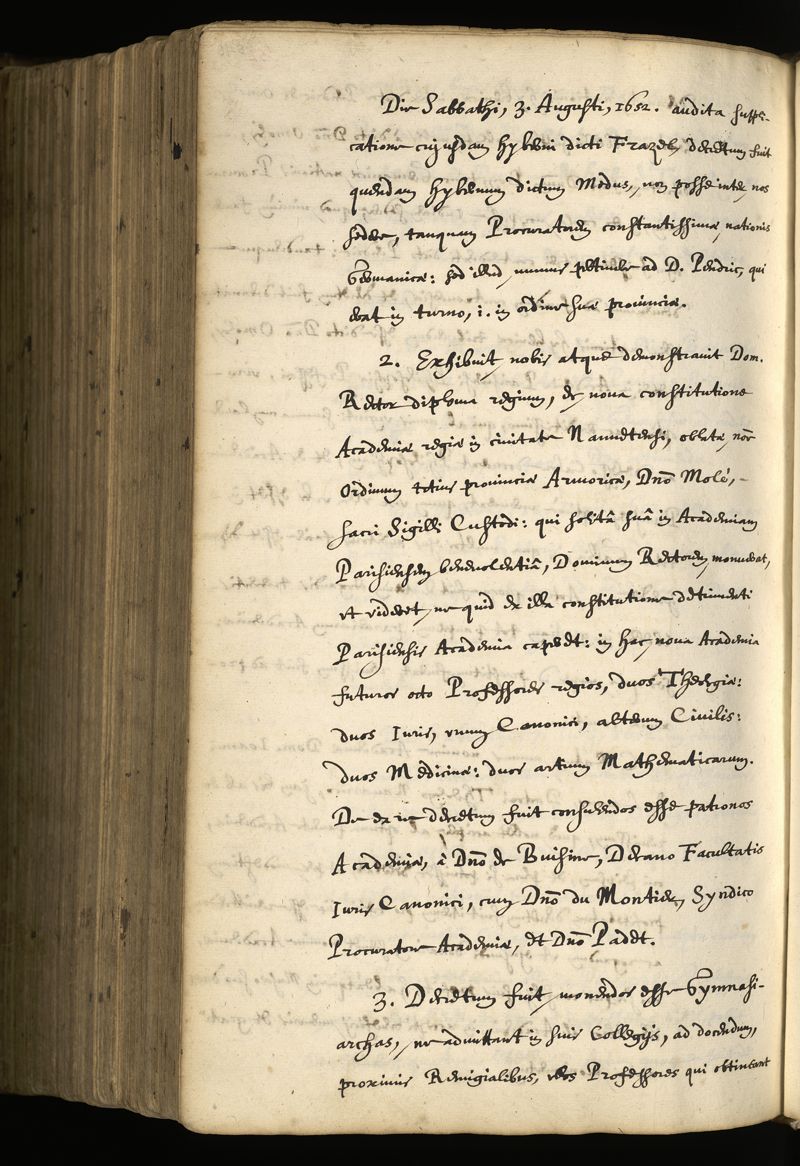 Die Sabbathi, 3. Augusti, 1652. audita suppli-
catione cujusdam hyberni dicti Frazer, decretum fuit
quendam hybernum dictum Modus, non posse inter nos
sedere, tanquam Procuratorem constantissimæ nationis
Germanicæ: sed illud munus pertinere ad D. Pendric, qui
erat in turno, i. in ordine suæ provinciæ.
2. Exhibuit nobis atque demonstravit Dom.
Rector diploma regium, de nova constitutione
Academiæ regiæ in civitate Nannetensi, oblatæ, noīe
Ordinum totius provinciæ Armoricæ, Dnō Molé, -
sacri Sigilli Custodi: qui solitâ suâ in Academiam
Parisiensem benevolentiâ, Dominum Rectorem monuerat,
vt videret, ne quid ex illa constitutione detrimenti
Parisiensis Academia caperet: in hac nova Academia
futuros octo Professores regios, duos Theologiæ:
duos Iuris, vnum Canonici, alterum Civilis:
duos Medicinæ: duos artium Mathematicarum.
De ex re decretum fuit consulendos esse patronos
Academiæ, â Dnō de Buisine, Decano Facultatis
Iuris Canonici, cum Dnō du Montier, Syndico
Procuratore Academiæ, et Dnō Padet.
3. Decretum fuit monendos esse Gymnasi-
archas, ne admittant in suis Collegijs, ad docendum,
proximis Remigialibus, eos Professores qui obtineant